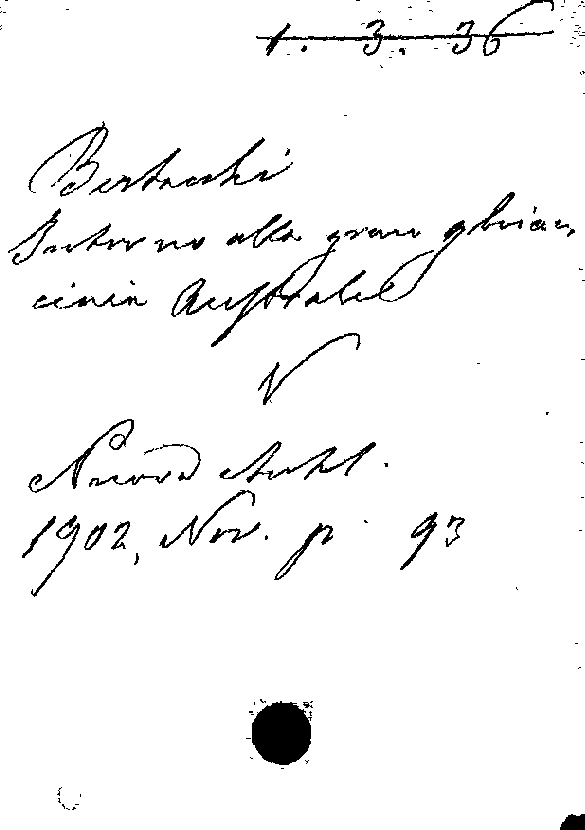 1. 3. 36
Bertacchi
Intorno alla gran ghiac,
ciaia Australe
V
Nuova Antol.
1902, Nov. p. 93